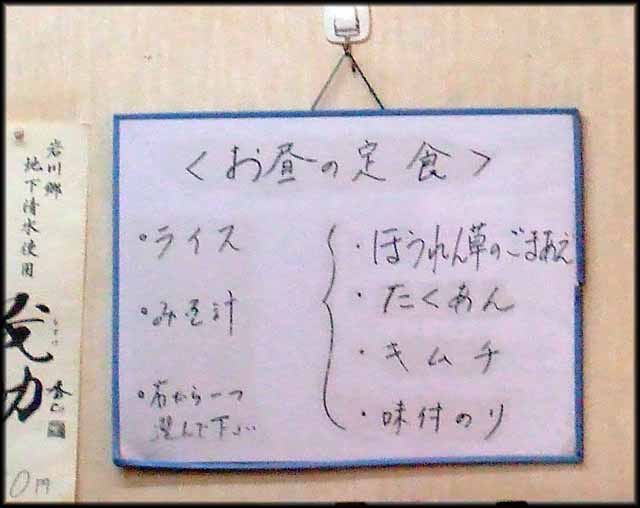 岩川郷
地下清水使用
円
<お昼の定食>
・ライス
・みそ汁
・右から一つ
選んで下さい
・ほうれん草のごまあえ
・たくあん
・キムチ
・味付のり